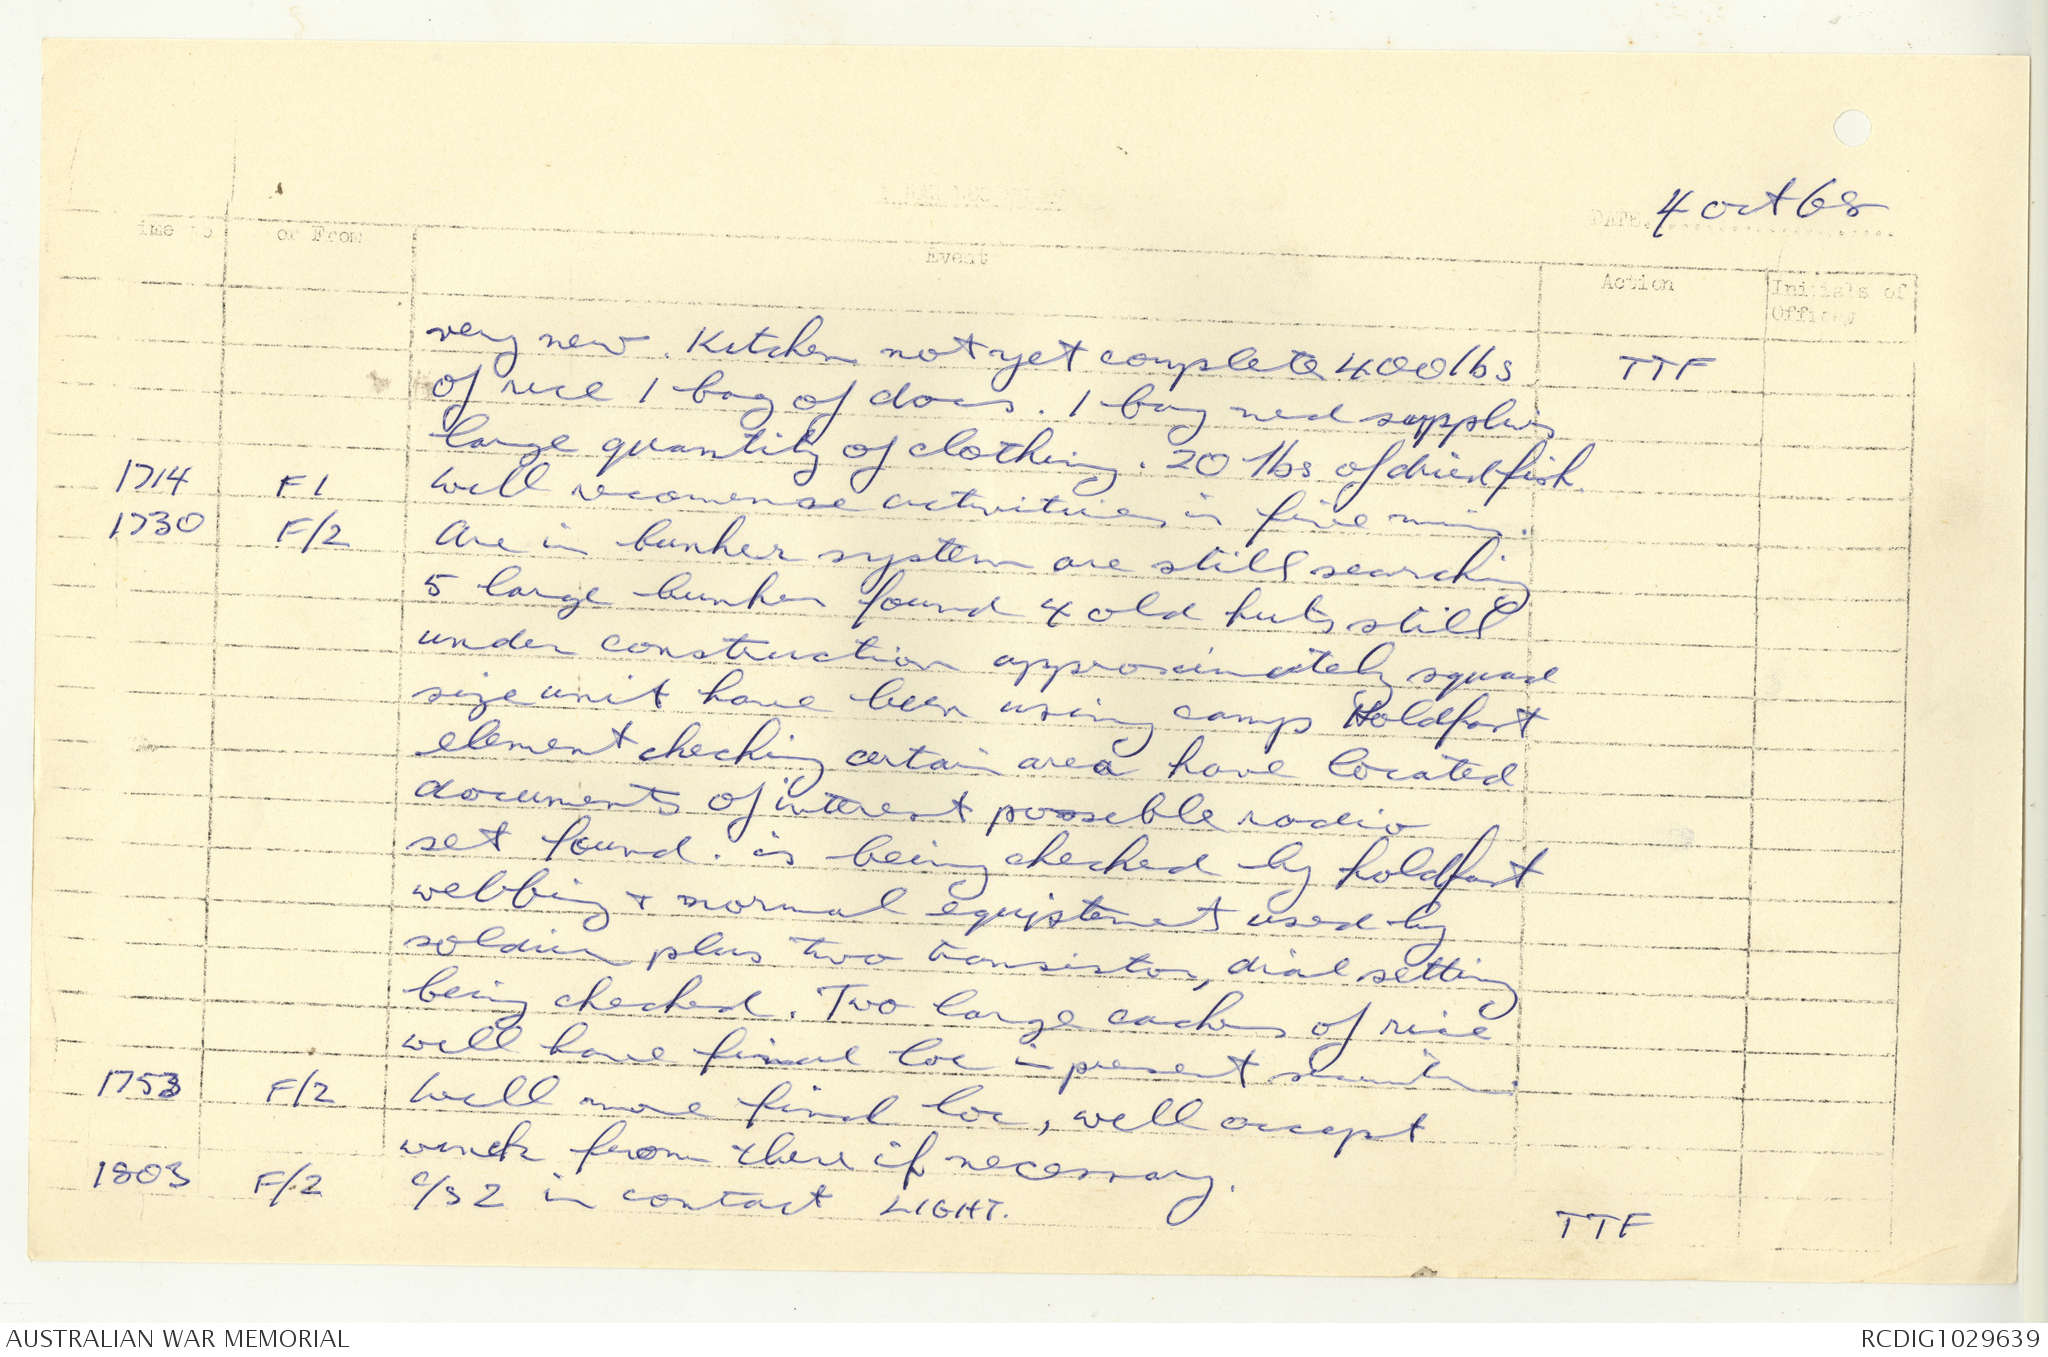 DATE. 4 Oct 68
ime to
or From
Event
Action
Initials of
Officer
very new. Kitchen not yet complete 400 lbs TTF
of rice 1 bag of docs. 1 bag med supplies
large quantity of clothing. 20 lbs of dried fish.
1714 F1 Will recomence activities in five mins.
1730 F/2 Are in bunker system are still searching
5 large bunker found 4 old huts still
under construction approximately squad
size unit have been using camp Holdfast
element checking certain area have located
documents of interest possible radio
set found. is being checked by holdfast
webbing + normal equiptment used by
soldier plus two transistors, dial setting
being checked. Two large caches of rice
will have final loc in present
1753 F/2 Will move final loc, will accept
winch from there if necessary.
1803 F/2 C/S 2 in contact LIGHT. TTF
AUSTRALIAN WAR MEMORIAL
RCDIG1029639